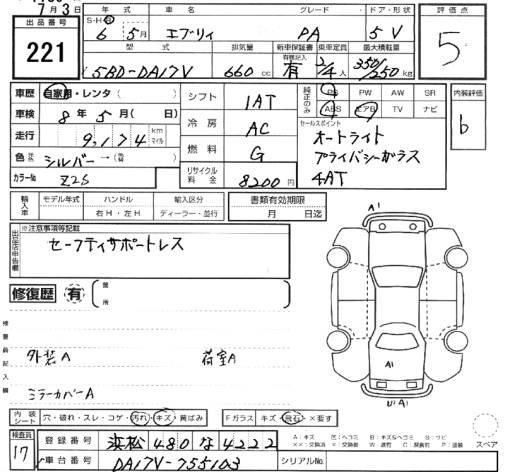 7月3日
出品番号
221
年式 車名 グレード ドア・形状
S・H・R 6年 5月 エブリィ PA 5 V
型式 排気量 新車保証書 乗車定員 最大積載量
5BD-DA17V 660cc 有 2/4人 350/250kg
評価点
5
車歴 自家用・レンタ ( )
車検 8年 5月 ( 日)
走行 9,174 km マイル
色 シルバー→(替 )
カラーNo Z2S
シフト 1AT
冷房 AC
燃料 G
リサイクル料金 8200円
純正のみ PS PW AW SR
ABS エアB TV ナビ
セールスポイント
オートライト
プライバシーガラス
4AT
内装評価
b
輸入車 モデル年式 ハンドル 輸入区分
右H・左H ディーラー・並行
書類有効期限
月 日迄
出品店申告欄 ※注意事項等記載
セーフティサポートレス
修復歴 有 箇所
検査員記入欄
外装A 荷室A
ミラーカバーA
A1
A1
A1
内装シート 穴・破れ・スレ・コゲ・汚れ・キズ・黄ばみ
Fガラス キズ・飛石・×要す
検査員
17
登録番号 浜松 480 な 4222
車台番号 DA17V-755103
シリアルNo.
A:キズ U:ヘコミ B:キズ&ヘコミ S:サビ
××:交換済 ×:要交換 W:波打 C:腐食 P:塗装
スペア